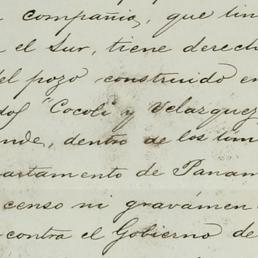 compañia, que lin
el Sur, tiene derech
del pozo construido en
dos "Cocoli" y Velazquez
nde, dentro de los lím
partamento de Panam
censo ni gravámen
contra el Gobierno de